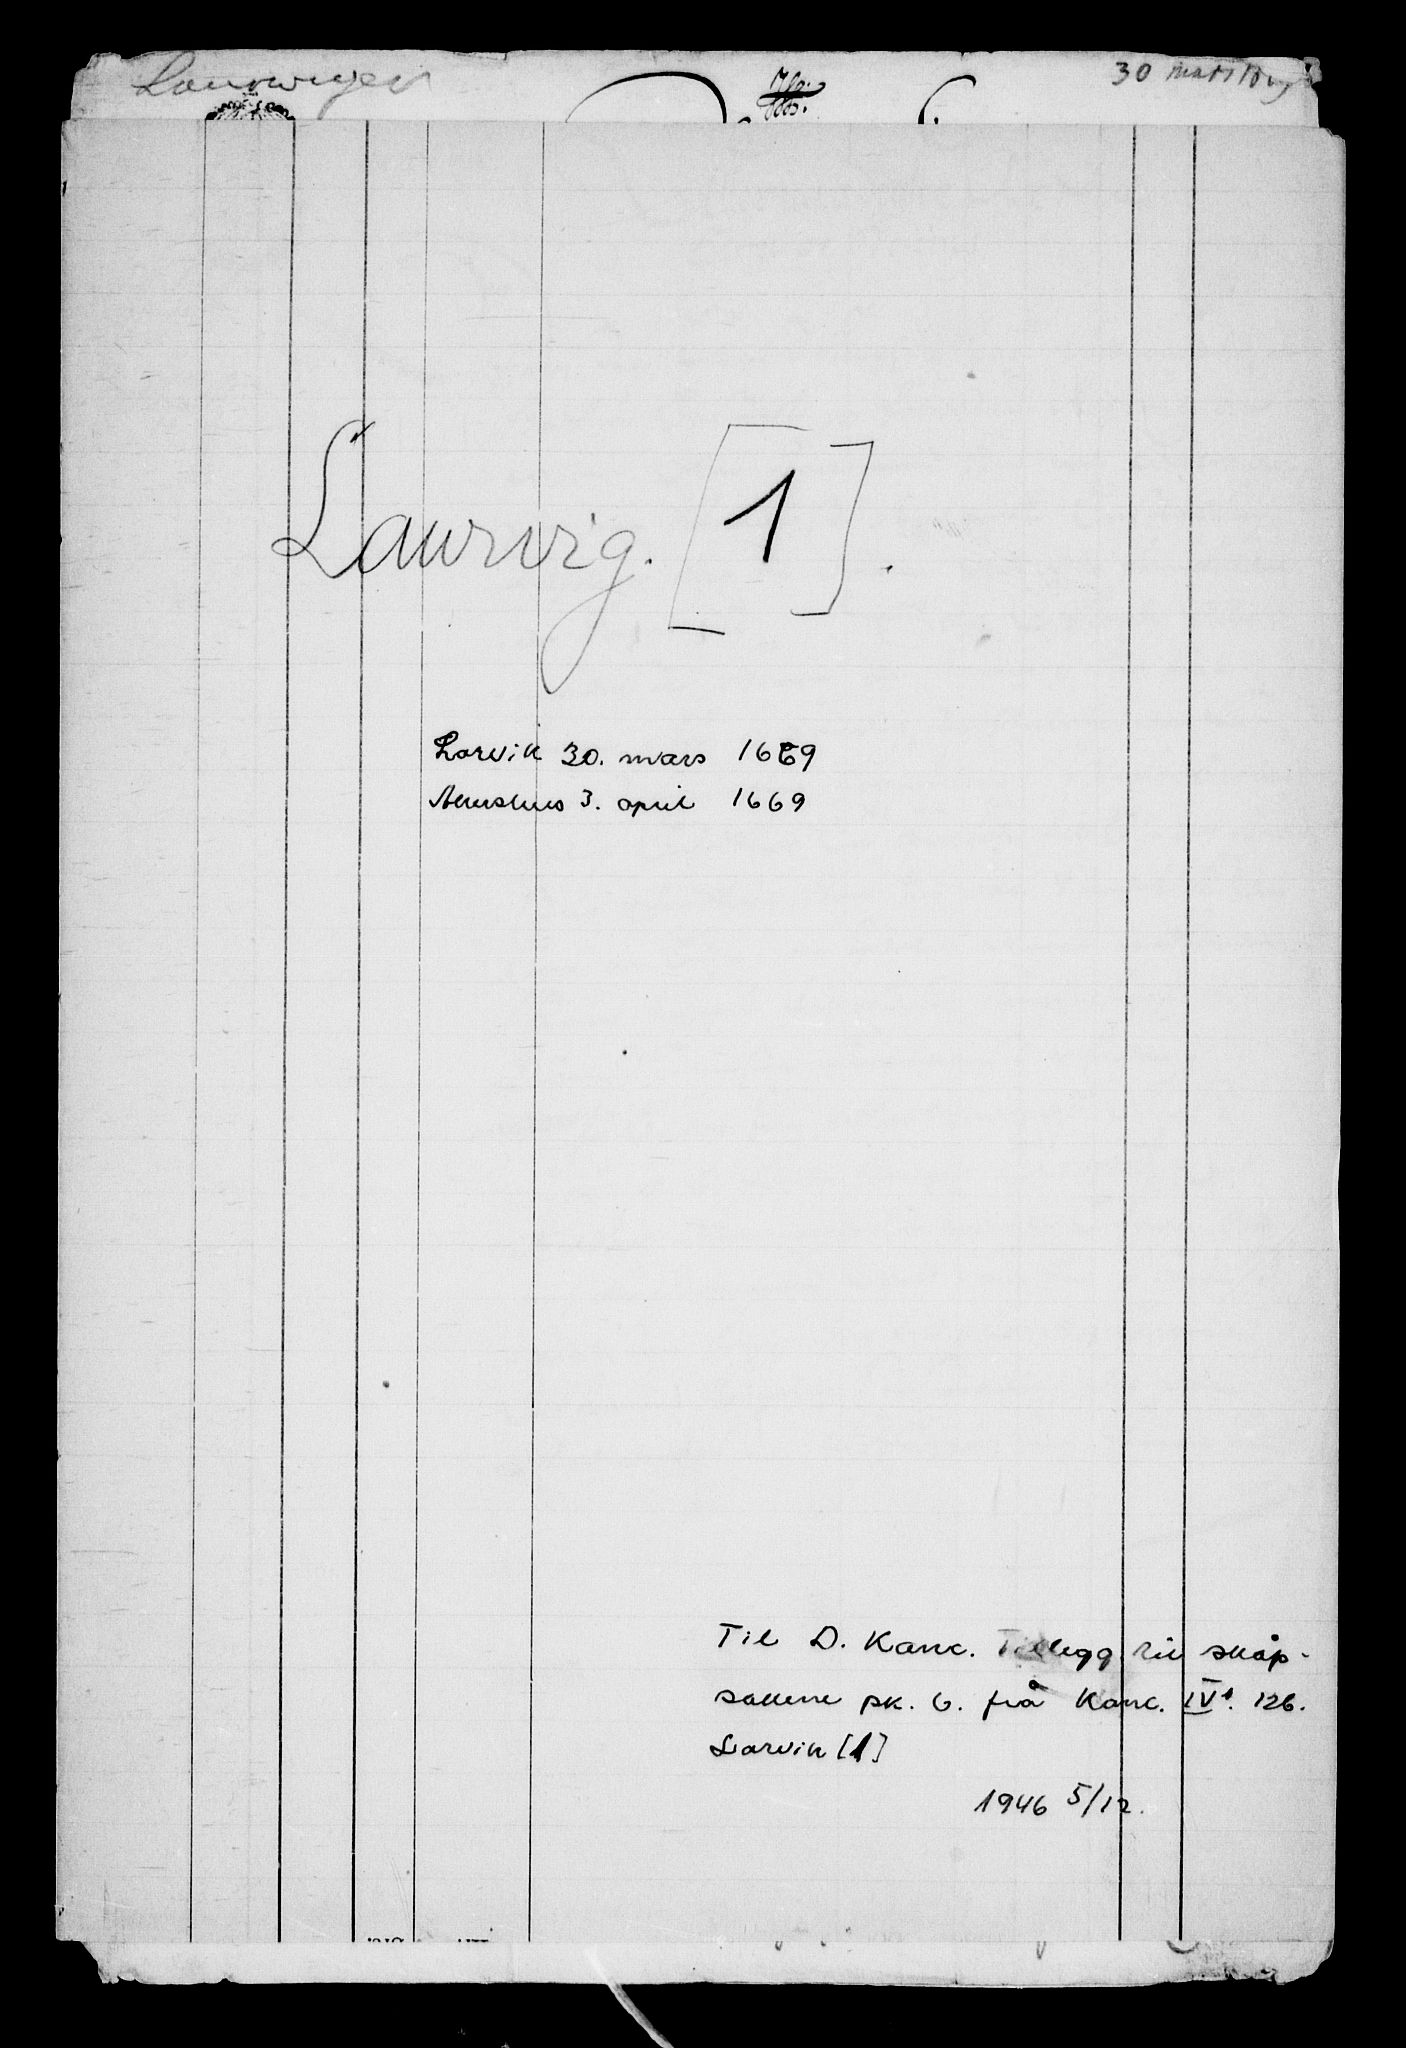 30 mars
Laurvig. [1].
Larvik 30. mars 1669
Akershus 3. april 1669
Til D. Kanc. Tillegg til skåp-
sakene pk. 6. frå Kanc. IV¹. 126.
Larvik [1]
1946 5/12.